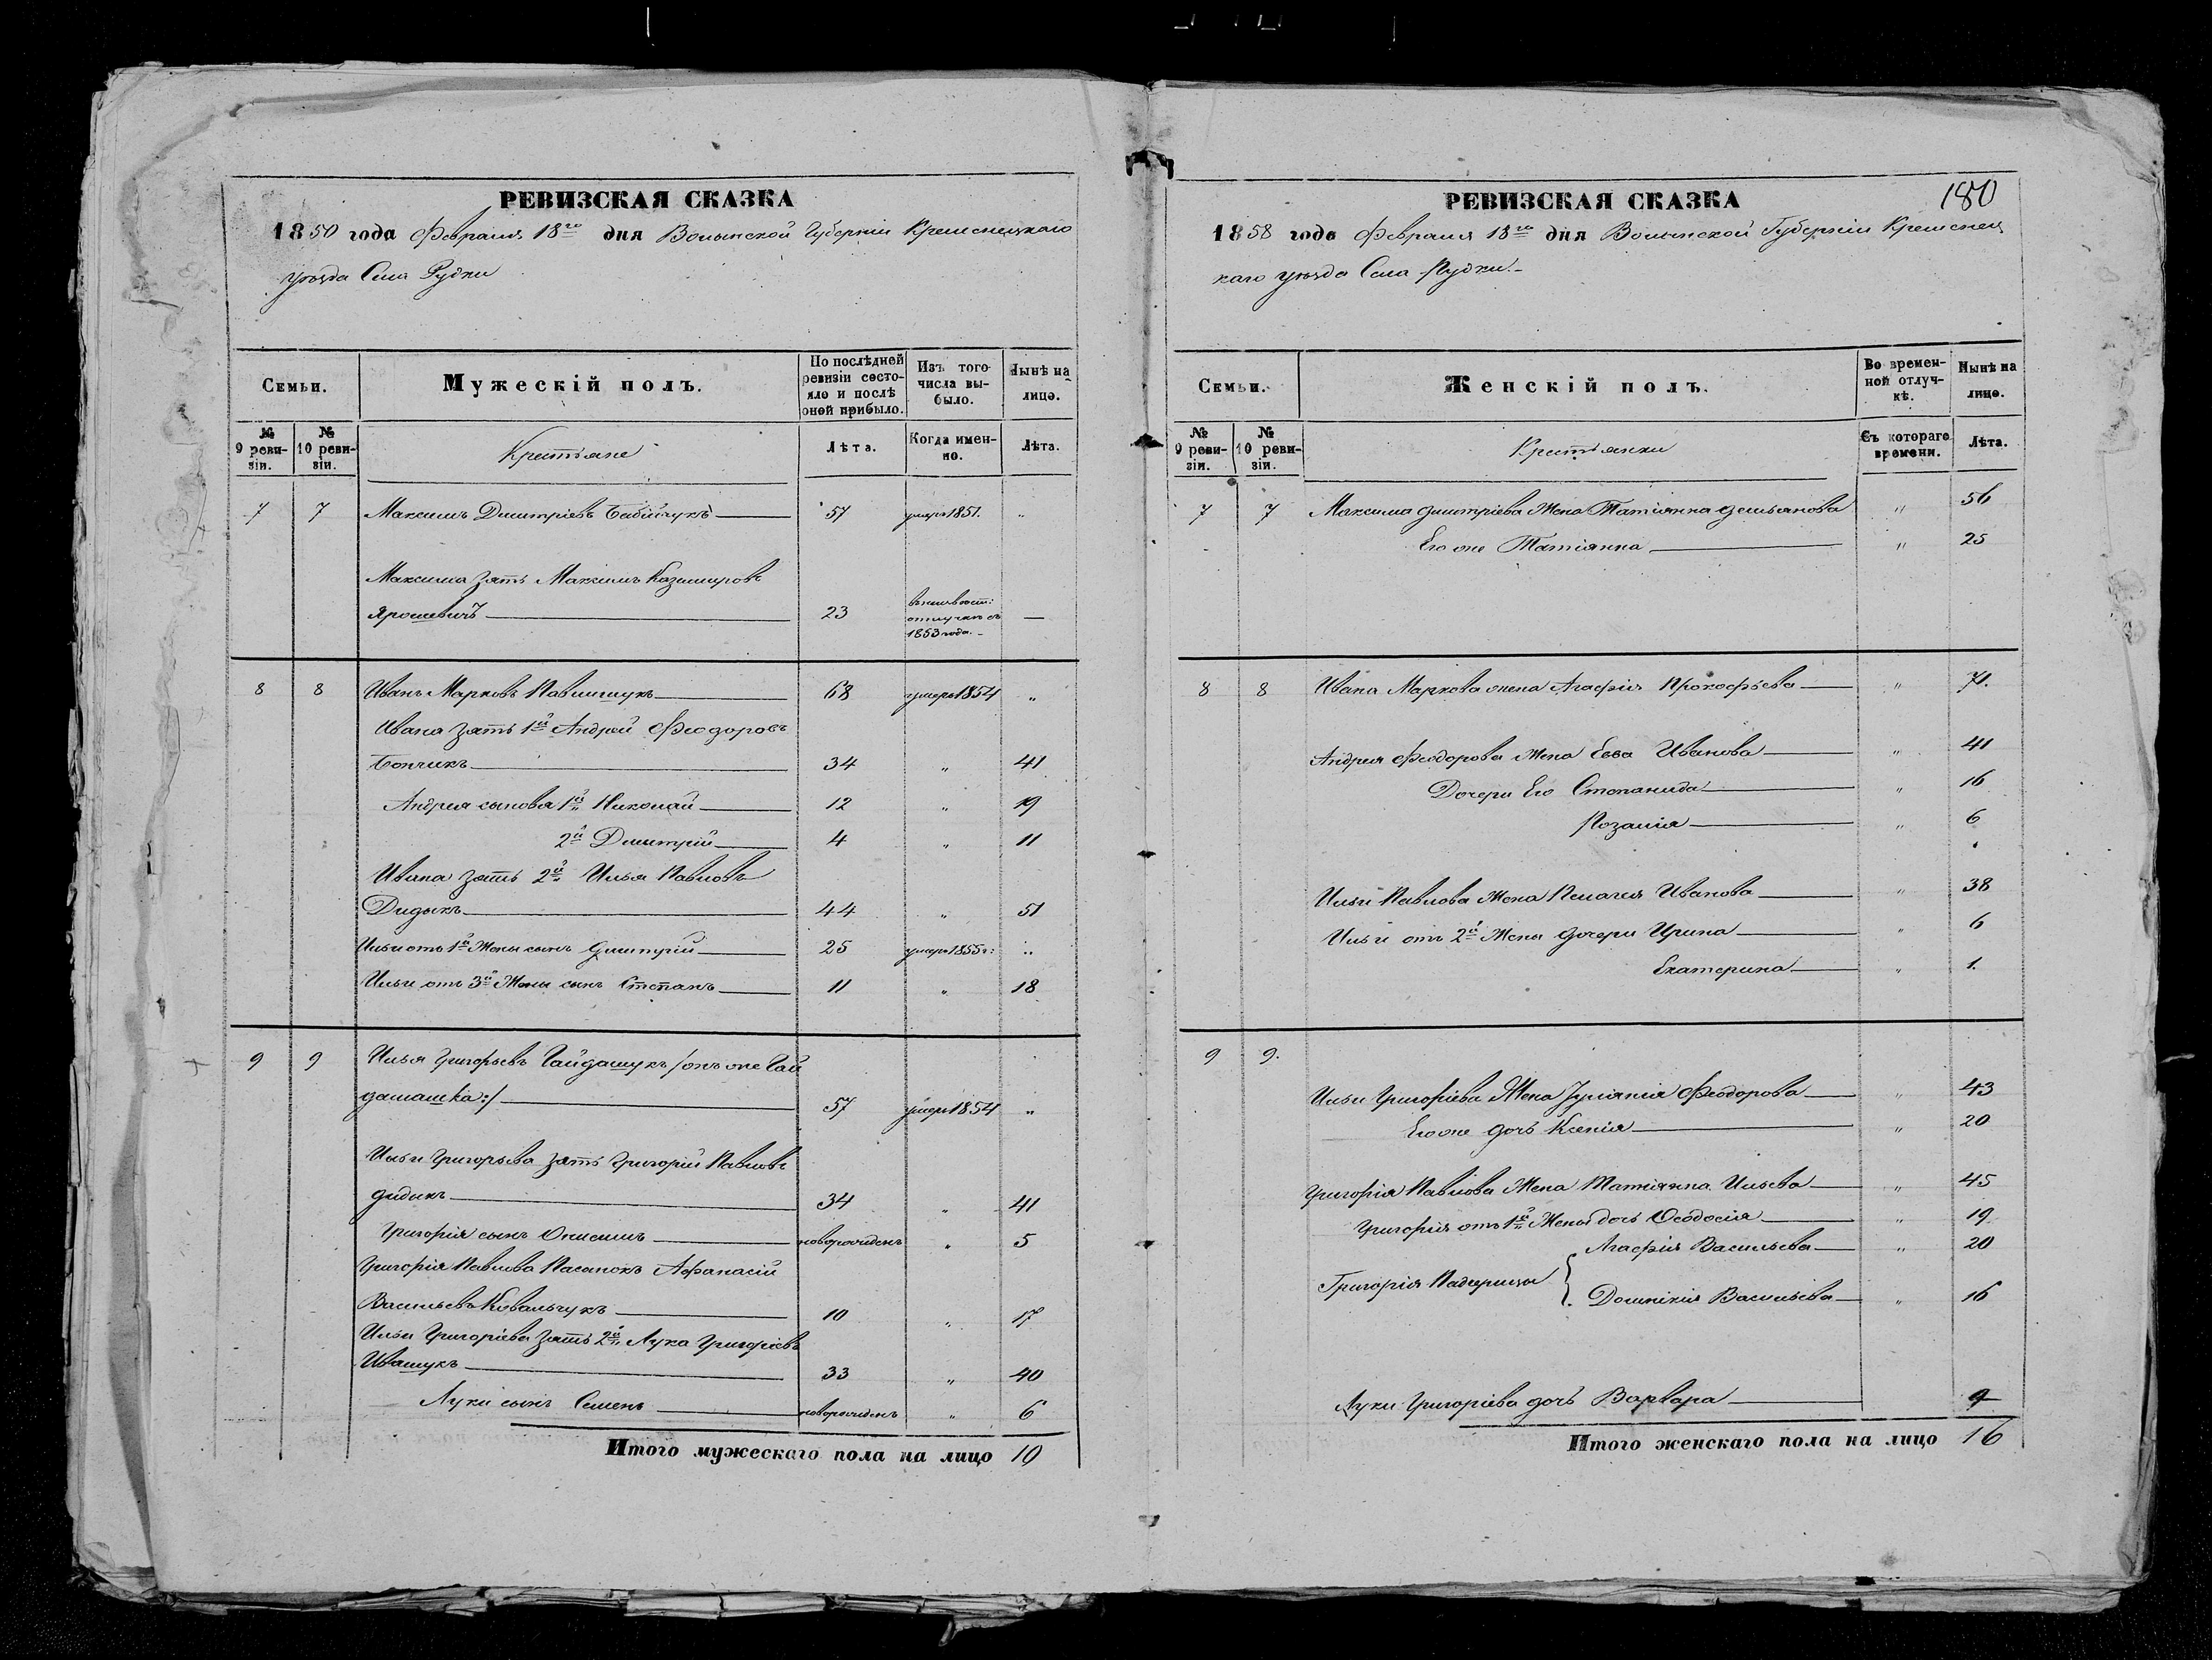 РЕВИЗСКАЯ СКАЗКА
1850 года Февраля 18го дня Волынской Губерніи Кременецкаго
уѣзда Села Рудки
Семьи.
Мужескій полъ.
По послѣдней ревизіи состояло и послѣ оной прибыло.
Изъ того числа выбыло.
Нынѣ на лицо.
№ 9 ревизіи.
№ 10 ревизіи.
Крестьяне
Лѣта.
Когда именно.
Лѣта.
7 7 Максимъ Дмитріевъ Бабійчукъ 57 умеръ 1851. "
Максима зять Максимъ Казимировъ
Ярошевичъ 23 отлучкѣ съ 1853 года. —
8 8 Иванъ Марковъ Павлищукъ 68 умеръ 1854 "
Ивана зять 1й Андрей Феодоровъ
Бончикъ 34 " 41
Андрея сыновя 1й Николай 12 " 19
2й Дмитрій 4 " 11
Ивана зять 2й Илья Павловъ
Дидыкъ 44 " 51
Ильи отъ 1й Жены сынъ Дмитрій 25 умеръ 1855 г: "
Ильи отъ 3й Жены сынъ Степанъ 11 " 18
9 9 Илья Григорьевъ Гайдашукъ /онъ же Гай
дамашка:/ 57 умеръ 1854 "
Ильи Григорьева зять Григорій Павловъ
Дидыкъ 34 " 41
Григорія сынъ Онисимъ новорожденъ " 5
Григорія Павлова Пасынокъ Афанасій
Васильевъ Ковальчукъ 10 " 17
Ильи Григоріева зять 2й Лука Григоріевъ
Иващукъ 33 " 40
Луки сынъ Семенъ новорожденъ " 6
Итого мужескаго пола на лицо 10
180
РЕВИЗСКАЯ СКАЗКА
1858 года Февраля 18го дня Волынской Губерніи Кременец
каго уѣзда Села Рудки.-
Семьи.
Женскій полъ.
Во временной отлучкѣ.
Нынѣ на лицо.
№ 9 ревизіи.
№ 10 ревизіи.
Крестьянки
Съ котораго времени.
Лѣта.
7 7 Максима Дмитріева Жена Татіянна Демьянова " 56
Его же Татіянна " 25
8 8 Ивана Маркова жена Агафія Прокофьева " 71.
Андрея Феодорова Жена Евва Иванова " 41
Дочери Его Степанида " 16
Розалія " 6
Ильи Павлова Жена Пелагея Иванова " 38
Ильи отъ 2й Жены дочери Ирина " 6
Екатерина " 1.
9 9.
Ильи Григоріева Жена Іуліянія Феодорова " 43
Его же дочь Ксенія " 20
Григорія Павлова Жена Татіянна Ильева " 45
Григорія отъ 1й Жены дочь Феодосія " 19
Агафія Васильева " 20
Григорія Падчерицы
Домникія Васильева " 16
Луки Григоріева дочь Варвара 9
Итого женскаго пола на лицо 16